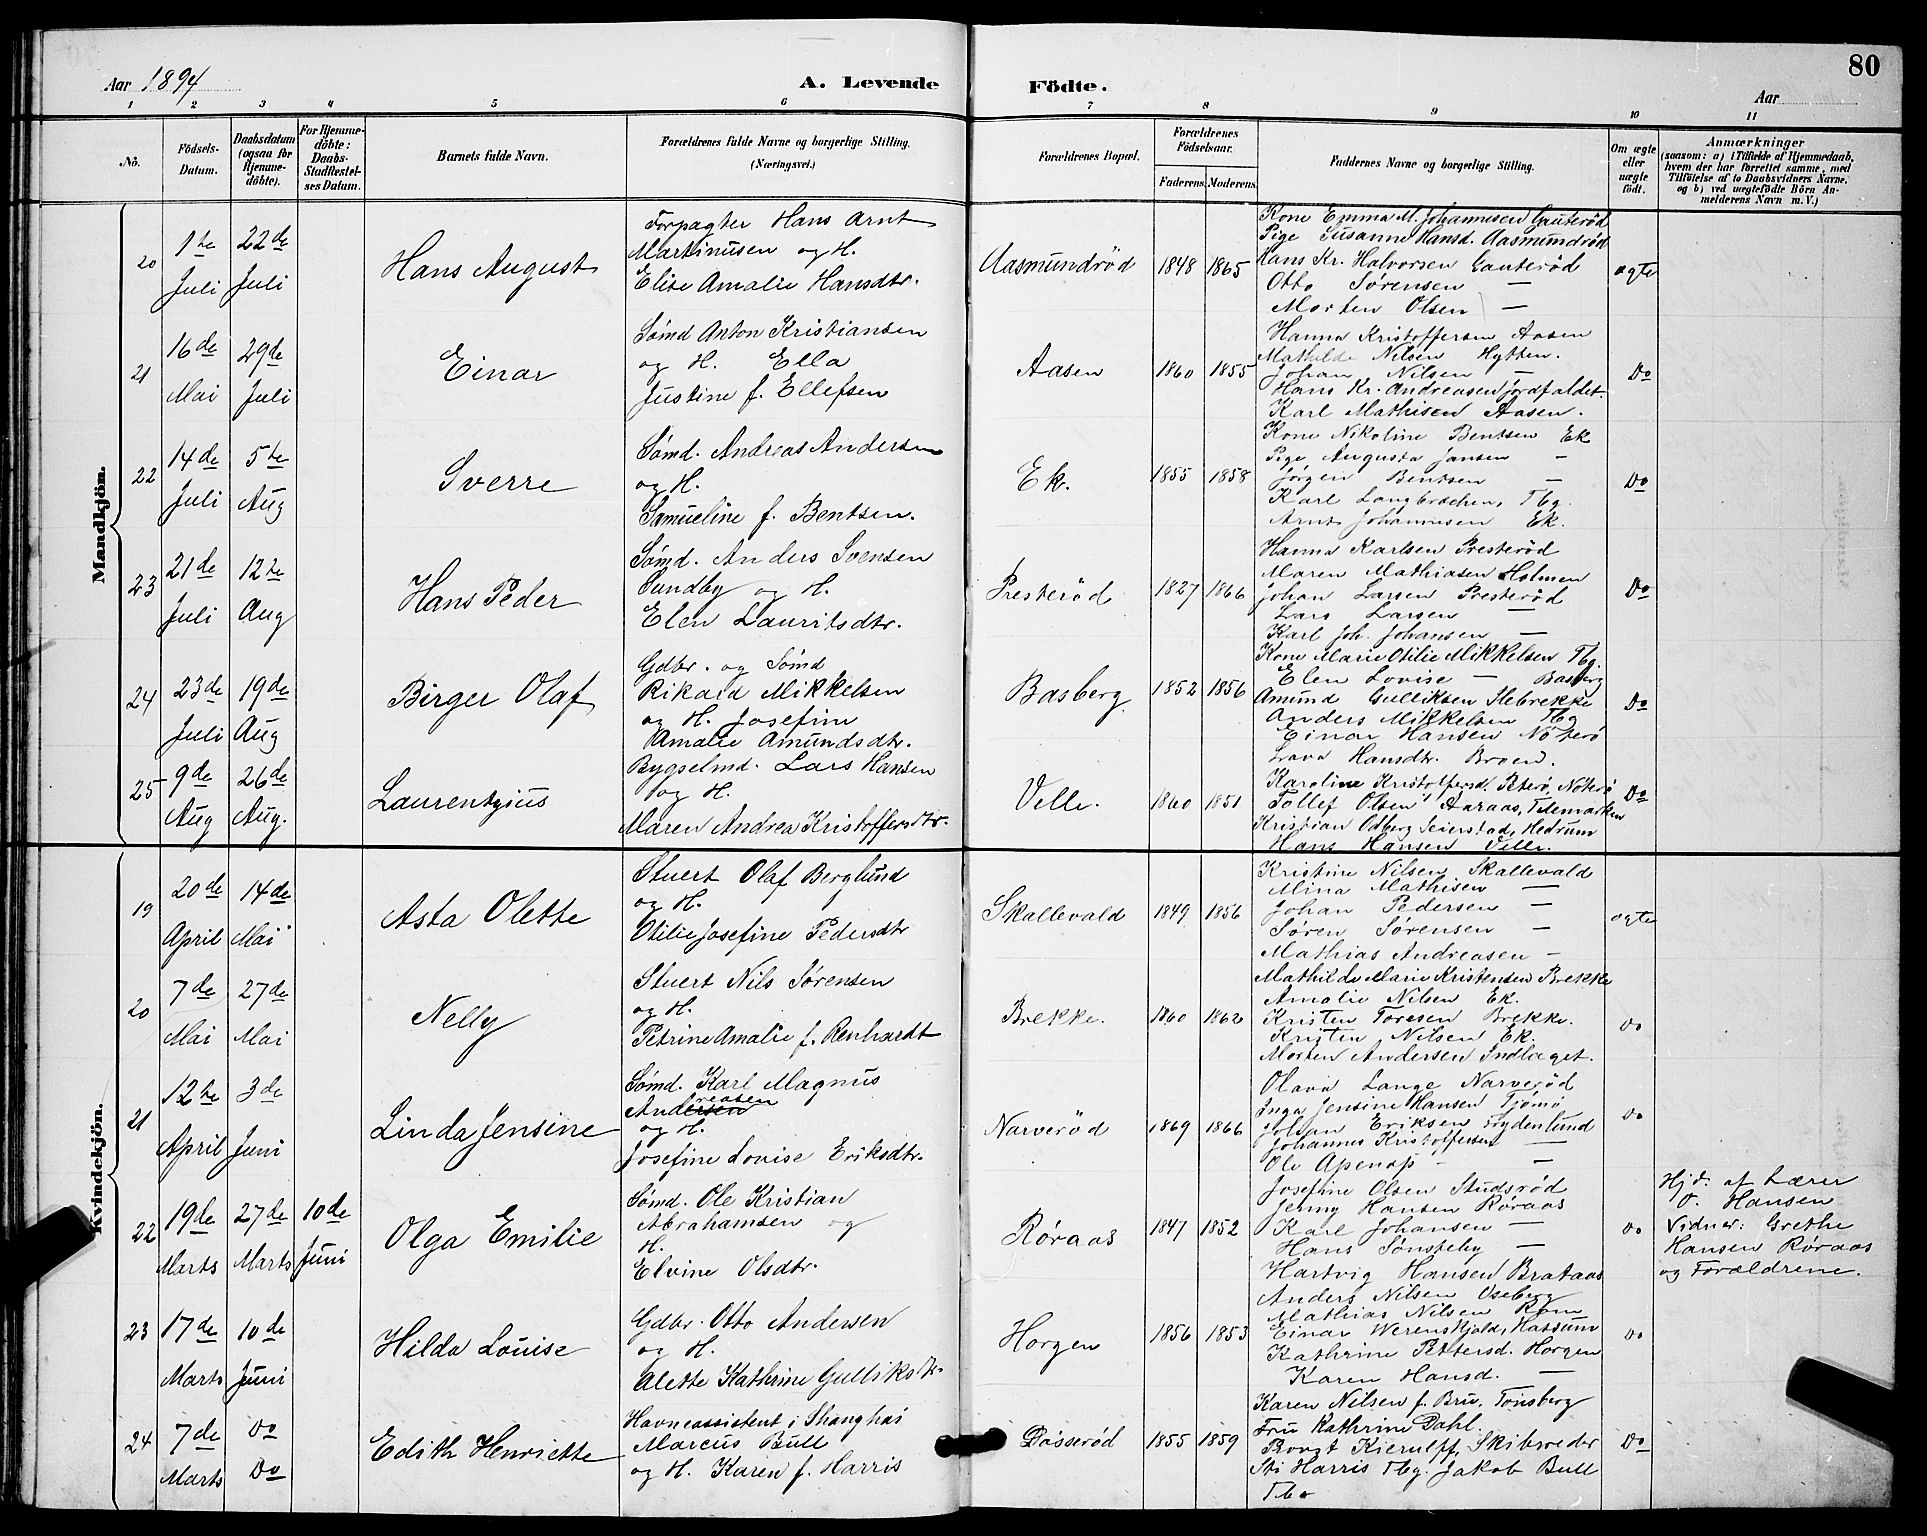 80
Aar 1894
A. Levende Födte.
Aar
1 2 3 4 5 6 7 8 9 10 11
No.
Födsels-Datum.
Daabsdatum (ogsaa for Hjemme-döbte).
For Hjemme-döbte: Daabs-Stadfæstel-ses Datum.
Barnets fulde Navn.
Forældrenes fulde Navne og borgerlige Stilling.
(Næringsvei.)
Forældrenes Bopæl.
Forældrenes Födselsaar.
Faderens. Moderens.
Faddernes Navne og borgerlige Stilling.
Om ægte eller uægte födt.
Anmærkninger
(saasom: a) i Tilfælde af Hjemmedaab,
hvem der har forrettet samme, med
Tilföielse af to Daabsvidners Navne,
og b) ved uægtefödte Börn An-
melderens Navn m. V.)
Mandkjön.
20
1te Juli
22de Juli
Hans August
Forpagter Hans Arnt
Martinusen og H.
Elise Amalie Hansdtr.
Aasmundrød
1848 1865
Kone Emma M. Johannesen Gauterød
Pige Susanne Hansd. Aasmundrød
Hans Kr. Halvorsen Gauterød
Otto Sørensen —
Morten Olsen —
ægte
21
16de Mai
29de Juli
Einar
Sømd Anton Kristiansen
og H. Ella
Justine f. Ellefsen
Aasen
1860 1855
Hanna Kristoffersen Aasen
Mathilde Nilsen Hytten.
Johan Nilsen —
Hans Kr. Andreasen Jordfaldet.
Karl Mathisen Aasen.
Do
22
14de Juli
5te Aug
Sverre
Sømd. Andreas Andersen
og H.
Samueline f. Bentsen.
Ek.
1855 1858
Kone Nikoline Bentsen Ek
Pige Augusta Jansen —
Jørgen Bentsen —
Karl Langbrachen, Tbg.
Arnt Johannesen Ek.
Do
23
21de Juli
12te Aug
Hans Peder
Sømd. Anders Svensen
Sundby og H.
Elen Lauritsdtr.
Presterød
1827 1866
Hanna Karlsen Presterød
Maren Mathiasen Holmen
Johan Larsen Presterød
Lars Larsen —
Karl Joh. Johansen —
Do
24
23de Juli
19de Aug
Birger Olaf
Gdbr. og Sømd
Rikard Mikkelsen
og H. Josefine
Amalie Amundsdtr.
Basberg
1852 1856
Kone Marie Otilie Mikkelsen Tbg.
Elen Lovise — Basberg
Amund Gulliksen Slebrekke
Anders Mikkelsen Tbg
Einar Hansen Nøterø
Do
25
9de Aug
26de Aug.
Laurentzius
Bygselmd. Lars Hansen
og H.
Maren Andrea Kristoffersdtr.
Velle.
1860 1851
Lava Hansdtr. Broen.
Karoline Kristofersd. Neterø, Nøterø
Tollef Olsen Aaraas, Telemarken
Kristian Odberg Seierstad, Hedrum
Hans Hansen Velle.
Do
Kvindekjön.
19
20de April
14de Mai
Asta Olette
Stuert Olaf Berglund
og H.
Otilie Josefine Pedersdtr
Skallevald
1849 1856
Kristine Nilsen Skallevald
Mina Mathisen —
Johan Pedersen —
Søren Sørensen —
Mathias Andreasen —
ægte
20
7de Mai
27de Mai
Nelly
Stuert Nils Sørensen
og H.
Petrine Amalie f. Renhardt
Brekke.
1860 1862
Mathilde Marie Kristensen Brekke
Amalie Nilsen Ek.
Kristen Toresen Brekke.
Kristen Nilsen Ek.
Morten Andersen Indlaget.
Do
21
12te April
3de Juni
Linda Jensine
Sømd. Karl Magnus
Andersen reasen
og H.
Josefine Lovise Eriksdtr.
Narverød
1869 1866
Olava Lange Narverød
Inga Jensine Hansen Tjømø
Johan Eriksen Frydenlund
Johannes Kristoffersen —
Ole Apenæs —
Do
22
19de Marts
27de Marts
10de Juni
Olga Emilie
Sømd. Ole Kristian
Abrahamsen og
H.
Elvine Olsdtr.
Røraas
1847 1852
Josefine Olsen Studsrød
Jenny Hansen Røraas
Karl Johansen —
Hans Sønsteby —
Hartvig Hansen Brataas
Do
Hjd. af Lærer
O. Hansen
Vidner: Grethe
Hansen Røraas
og Forældrene.
23
17de Marts
10de Juni
Hilda Louise
Gdbr. Otto Andersen
og H.
Alette Kathrine Gulliksdtr.
Horgen
1856 1853
Anders Nilsen Oseberg
Mathias Nilsen Rom
Einar Werenskjold, Hassum
Kathrine Pettersd. Horgen
Karen Hansd. —
Do
24
7de Marts
Do Do
Edith Henriette
Havneassistent i Shanghai
Marcus Bull
og H. Karen f. Harris
Basserød
1855 1859
Karen Nilsen f. Bru, Tønsberg
Fru Kathrine Dahl.
Kierulff, Skibsreder
Harris Tbg. Jakob Bull
Tbg
Do